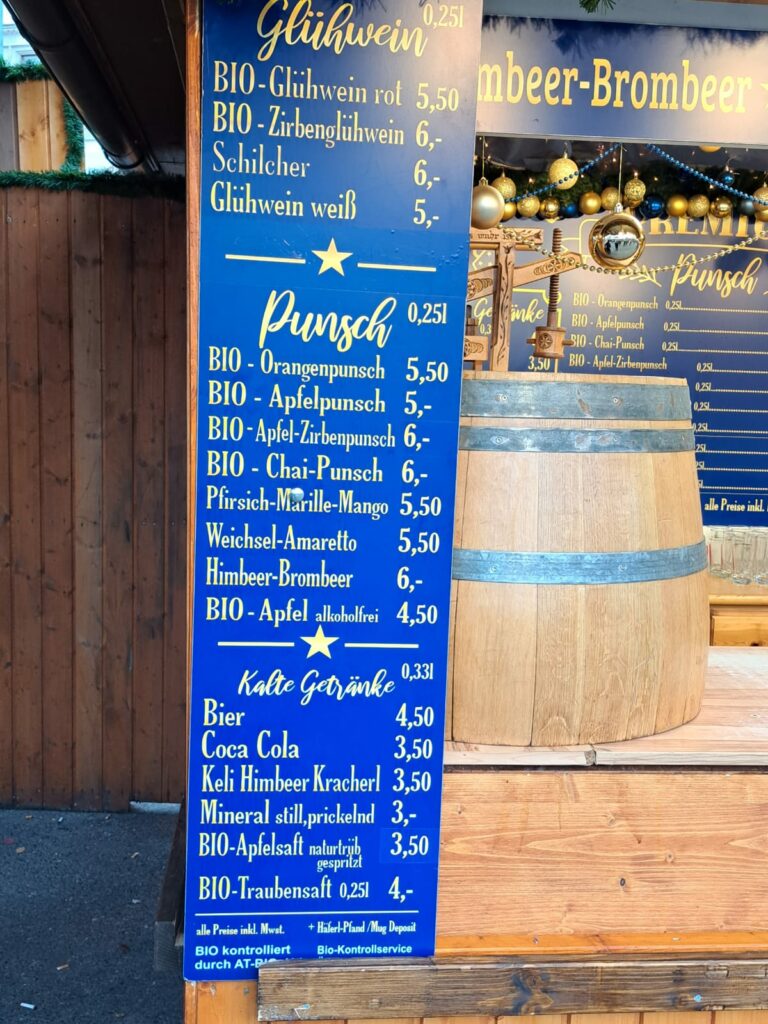 Glühwein 0,25l
BIO - Glühwein rot 5,50
BIO - Zirbenglühwein 6,-
Schilcher 6,-
Glühwein weiß 5,-
Punsch 0,25l
BIO - Orangenpunsch 5,50
BIO - Apfelpunsch 5,-
BIO - Apfel-Zirbenpunsch 6,-
BIO - Chai-Punsch 6,-
Pfirsich-Marille-Mango 5,50
Weichsel-Amaretto 5,50
Himbeer-Brombeer 6,-
BIO - Apfel alkoholfrei 4,50
Kalte Getränke 0,33l
Bier 4,50
Coca Cola 3,50
Keli Himbeer Kracherl 3,50
Mineral still,prickelnd 3,-
BIO-Apfelsaft naturtrüb 3,50
gespritzt
BIO-Traubensaft 0,25l 4,-
alle Preise inkl. Mwst. + Häferl-Pfand /Mug Deposit
BIO kontrolliert Bio-Kontrollservice
durch
mbeer-Brombeer
Punsch
BIO - Orangenpunsch 0,25l
BIO - Apfelpunsch 0,25l
BIO - Chai-Punsch 0,25l
BIO - Apfel-Zirbenpunsch
0,25l
0,25l
0,25l
0,25l
0,25l
0,25l
alle Preise inkl.
3,50